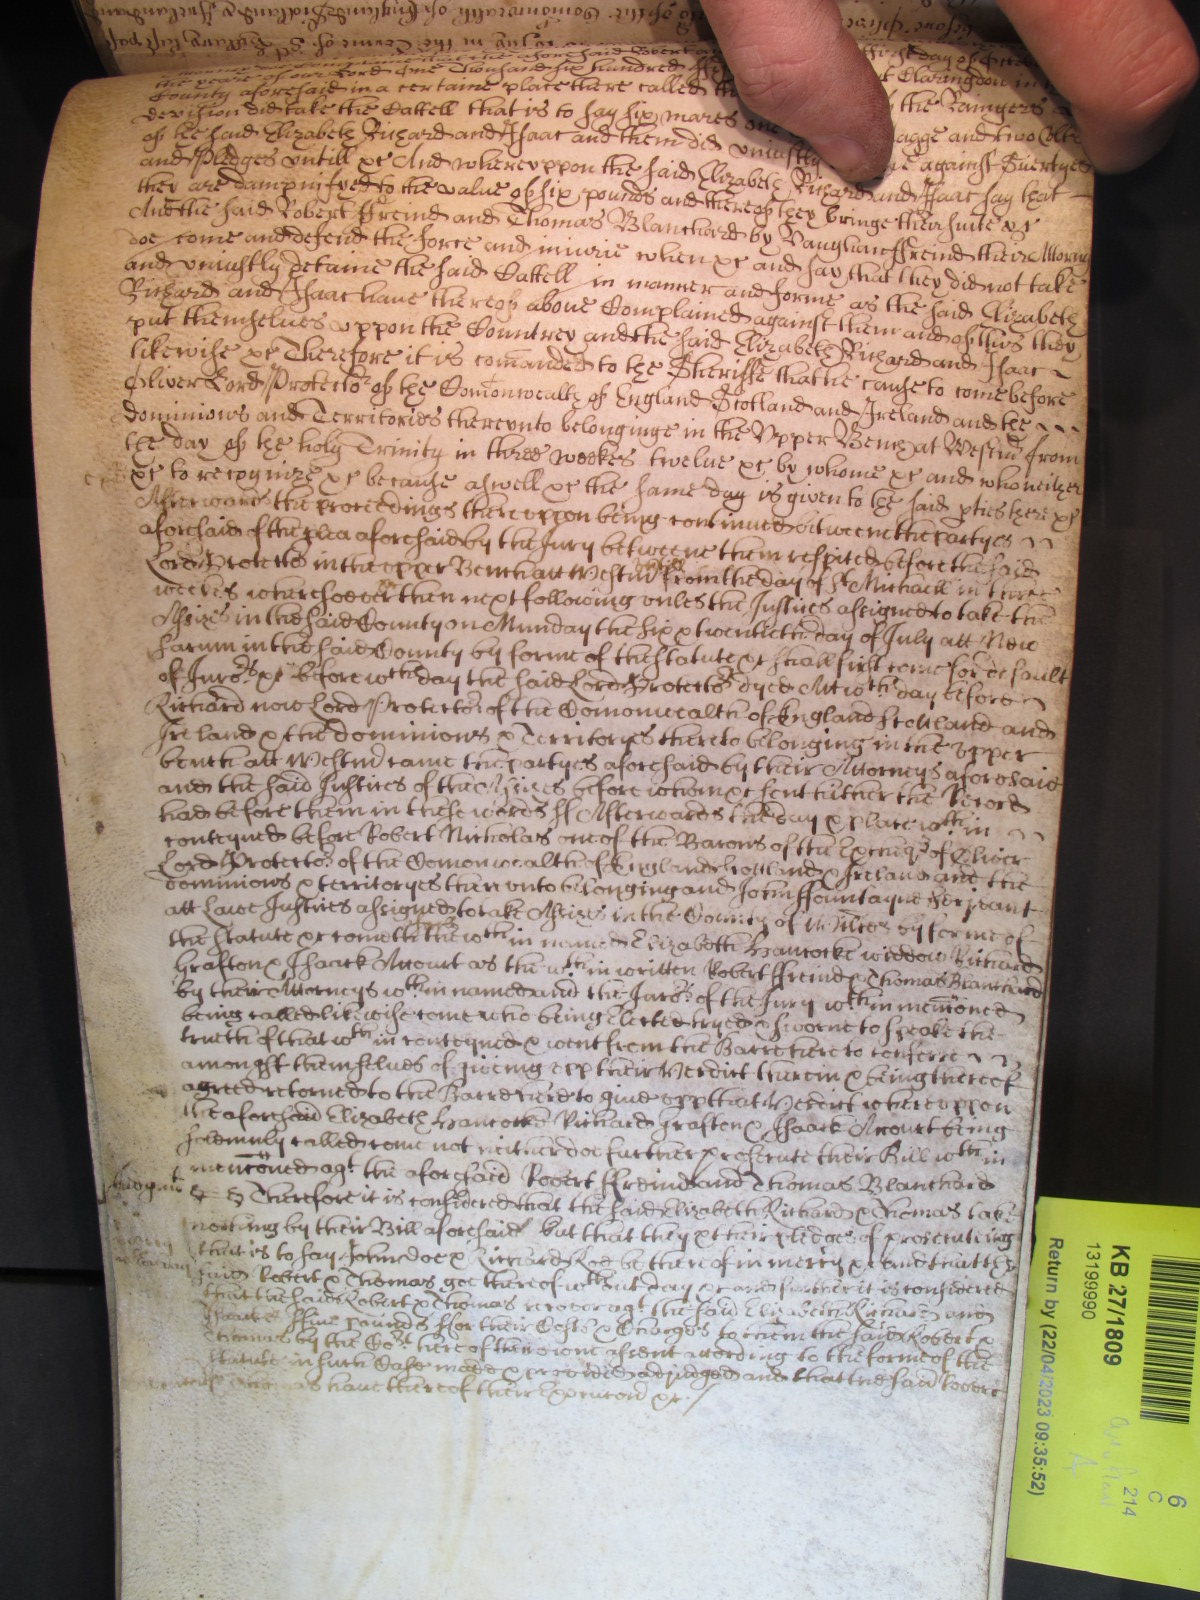 the yeare of our Lord One Thousand six hundred
County aforesaid in a certaine place there called the Raingers
devision did take the Cattell that is to say six mares one nagge and two Colts
of the said Elizabeth Richard and Isaac and them did uniustly against Suertyes
and Pledges untill &c And whereuppon the said Elizabeth Richard and Isaac say that
they are dampnifyed to the value of six pounds and thereof they bringe their suite &c
And the said Robert Freind and Thomas Blanchard by Vaughan ffreind their Attorny
doe come and defend the force and iniurie when &c and say that they did not take
and uniustly detaine the said Cattell in manner and forme as the said Elizabeth
Richard and Isaac have thereof above Complained against them and of this they
put themselves uppon the Countrey and the said Elizabeth Richard and Isaac
likewise &c Therefore it is comanded to the Sheriffe that he cause to come before
Oliver Lord Protector of the Comonwealth of England Scotland and Ireland and the
dominions and Territories thereunto belonginge in the Upper Bench at Westmr from
the day of the holy Trinity in three weekes twelve &c by whome &c and who neither
&c to recognize &c because aswell &c the same day is given to the said pties there &c
Afterwards the proceedings thereuppon being continued betweene the partyes
aforesaid of the plea aforesaid by the Jury betweene them respited before the said
Lord Protector in the upper Bench att Westmr untill from the day of St Michaell in three
weekes wheresoever then next following unles the Justices assigned to take the
Assizes in the said County on Munday the six & twentieth day of July att New
Sarum in the said County by forme of the statute &c shall first come for default
of Jurors &c before wch day the said Lord Protector dyed Att wch day before
Richard now Lord Protector of the Comonwealth of England Scotland and
Ireland & the dominions & Territoryes thereto belonging in the upper
bench att Westmr came the partyes aforesaid by their Attorneys aforesaid
and the said Justices of the Assizes before whom &c sent hither the Record
had before them in these words ss Afterwards the day & place wthin
conteyned before Robert Nicholas one of the Barons of the Excheqr of Oliver
Lord Protector of the Comonwealth of England Scotland & Ireland and the
dominions & territoryes thereunto belonging and John ffountayne Serjeant
att Lawe Justices assigned to take Assizes in the County of Wiltes by forme of
the statute &c cometh the wthin named Elizabeth Hancocke widdow Richard
Grafton & Isaack Acourt as the wthin written Robert ffreind & Thomas Blanchard
by their Attorneys wthin named and the Jurors of the Jury wthin mencioned
being called likewise come who being Elected tryed & sworne to speake the
truth of that wthin conteyned & went from the Barre here to conferre
amongst themselves of giveing upp their Verdict therein & being thereof
agreed retorned to the Barre here to give upp that Verdict whereuppon
the aforesaid Elizabeth Hancocke Richard Grafton & Isaack Acourt being
solemnly called come not neither doe further prosecute their Bill wthin
mencioned agt the aforesaid Robert ffreind and Thomas Blanchard
Therefore it is considered that the said Elizabeth Richard & Thomas take
nothing by their Bill aforesaid but that they & their pledges of prosecuting
that is to say John doe & Richard Roe be thereof in mercy &c and that the
said Robert & Thomas goe thereof wthout day &c and further it is considered
that the said Robert & Thomas recover agt the said Elizabeth Richard and
Isaacke ffive pounds for their Costs & Charges to them the said Robert &
Thomas by the Cort here of their owne assent according to the forme of the
statute in such Case made & provided adjudged and that the said Robert
Thomas have thereof their Execucion &c
KB 27/1809
13199990
Return by (22/04/2023 09:35:52)
6
C
214